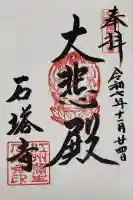 奉拝
令和七年十一月廿四日
大悲殿
石塔寺